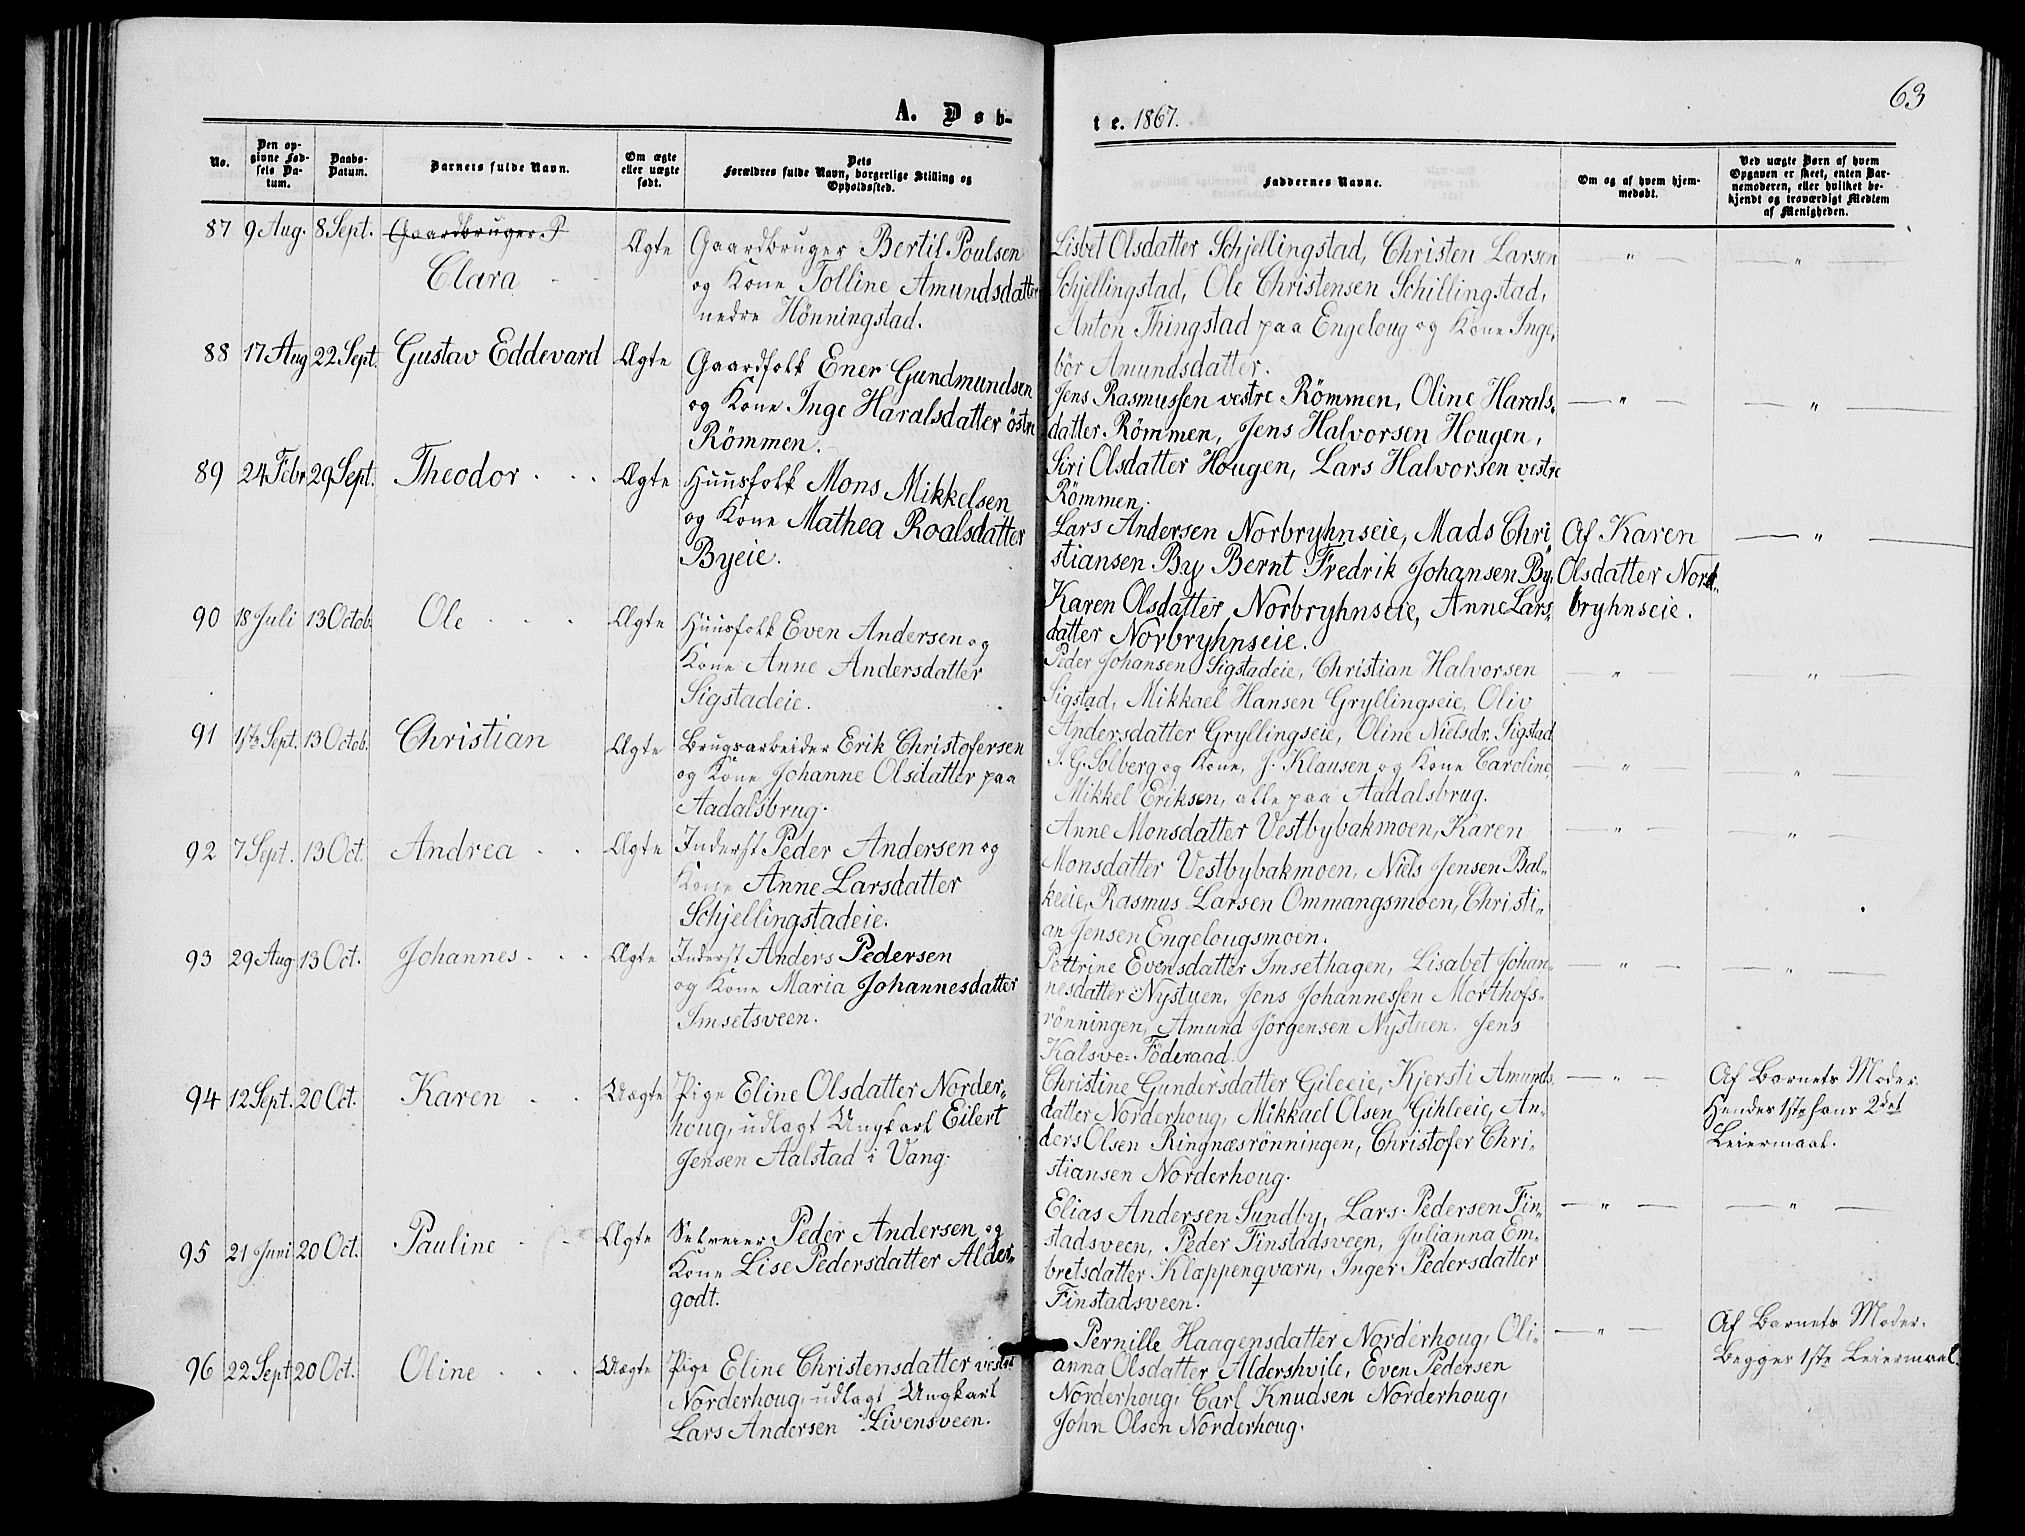 63
A. Døb-
te. 1867.
No.
Den op-
givne Fød-
sels Da-
tum.
Daabs-
Datum.
Barnets fulde Navn.
Om ægte
eller uægte
født.
Dets
Forældres fulde Navn, borgerlige Stilling og
Opholdssted.
Faddernes Navne.
Om og af hvem hjem-
medøbt.
Ved uægte Børn af hvem
Opgaven er skeet, enten Bar-
nemoderen, eller hvilket be-
kjendt og troværdigt Medlem
af Menigheden.
87 9 Aug. 8 Sept. Gaardbruger P
Clara
Ægte
Gaardbruger Bertil Poulsen
og Kone Tolline Amundsdatter
nedre Hönningstad.
Lisbet Olsdatter Schjellingstad, Christen Larsen
Schjellingstad, Ole Christensen Schillingstad,
Anton Thingstad paa Engeloug og Kone Inge-
bör Amundsdatter.
— " — — " —
88 17 Aug 22 Sept. Gustav Eddevard Ægte
Gaardfolk Ener Gundmundsen
og Kone Inge Haralsdatter östre
Römmen.
Jens Rasmussen vestre Römmen, Oline Harals-
datter Römmen, Jens Halvorsen Hougen,
Siri Olsdatter Hougen, Lars Halvorsen vestre
Römmen.
— " — — " —
89 24 Febr 29 Sept. Theodor Ægte
Huusfolk Mons Mikkelsen
og Kone Mathea Roalsdatter
Byeie.
Lars Andersen Norbryhnseie, Mads Chri
stiansen By, Bernt Fredrik Johansen By,
Karen Olsdatter Norbryhnseie, Anne Lars-
datter Norbryhnseie.
Af Karen
Olsdatter Nord-
bryhnseie.
— " —
90 18 Juli 13 Octob. Ole Ægte
Huusfolk Even Andersen og
Kone Anne Andersdatter
Sigstadeie.
Peder Johansen Sigstadeie, Christian Halvorsen
Sigstad, Mikkael Hansen Gryllingseie, Oliv
Andersdatter Gryllingseie, Oline Nielsdr. Sigstad
— " — — " —
91 1ste Sept. 13 Octob. Christian Ægte
Brugsarbeider Erik Christofersen
og Kone Johanne Olsdatter paa
Aadalsbrug.
I. G. Solberg og Kone, J. Klausen og Kone Caroline,
Mikkel Eriksen, alle paa Aadalsbrug.
— " — — " —
92 7 Sept. 13 Oct. Andrea Ægte
Inderst Peder Andersen og
Kone Anne Larsdatter
Schjellingstadeie.
Anne Monsdatter Vestbybakmoen, Karen
Monsdatter Vestbybakmoen, Niels Jensen Bal-
keeie, Rasmus Larsen Ommangsmoen, Christi-
an Jensen Engelougsmoen.
— " — — " —
93 29 Aug 13 Oct. Johannes Ægte
Inderst Anders Pedersen
og Kone Maria Johannesdatter
Imsetsveen.
Pettrine Evensdatter Imsethagen, Lisabet Johan-
nesdatter Nystuen, Jens Johannessen Morthofs-
rönningen, Amund Jörgensen Nystuen. Jens
Kalsve: Föderaad.
— " — — " —
94 12 Sept. 20 Oct. Karen Uægte
Pige Eline Olsdatter Norder-
houg, udlagt Ungkarl Eilert
Jensen Aalstad i Vang.
Christine Gundersdatter Gileeie, Kjersti Amunds-
datter Norderhoug, Mikkael Olsen Gihleeie, An-
ders Olsen Ringnæsrönningen, Christofer Chri-
stiansen Norderhoug.
— " —
Af Barnets Moder.
Hendes 1ste hans 2det
Leiermaal.
95 21 Juni 20 Oct. Pauline Ægte
Selveier Peder Andersen og
Kone Lise Pedersdatter Alder-
godt.
Elias Andersen Sundby, Lars Pedersen Fin-
stadsveen, Peder Finstadsveen, Julianna Em-
bretsdatter Klæppenqvarn, Inger Pedersdatter
Finstadsveen.
— " — — " —
96 22 Sept 20 Oct. Oline Uægte
Pige Eline Christensdatter vestre
Norderhoug, udlagt Ungkarl
Lars Andersen Livensveen.
Pernille Haagensdatter Norderhoug, Oli-
anna Olsdatter Aldershvile, Even Pedersen
Norderhoug, Carl Knudsen Norderhoug,
John Olsen Norderhoug.
— " —
Af Barnets Moder.
Begges 1ste Leiermaal.